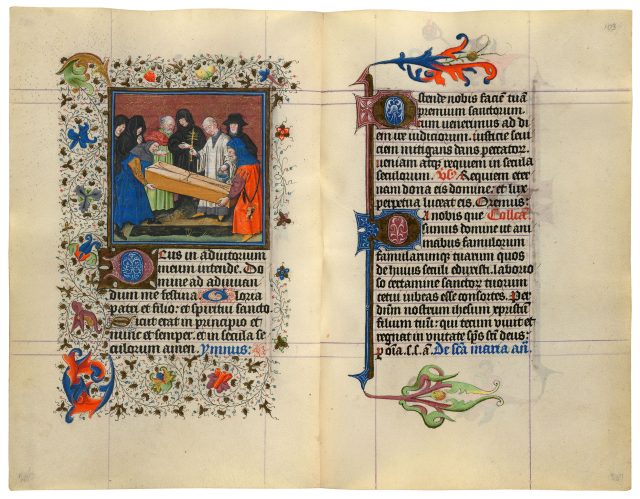 Deus in adiutorium
meum intende. Do
mine ad adiuuan
dum me festina. Gloria
patri et filio: et spiritui sancto
Sicut erat in principio et
nunc et semper. et in secula se
culorum amen. Ymnus:
103
Ostende nobis faciē tuā
premium sanctorum.
cum uenerimus ad di
em ire iudicorum. iusticie
mitigans in peccator.
ueniam atqꝫ requiem in secula
seculorum. Requiem eter
nam dona eis domine: et lux
perpetua luceat eis. Oremus:
Da nobis que Collecta
domine ut ani
mabus famulorum
famularumqꝫ tuarum quos
de huius seculi eduxisti. laborio
so certamine sanctorꝫ tuorum
cetu iubeas esse consortes. Per
dn̄m nostrum thesum xp̄istum
filium tuū: qui tecum viuit et
regnat in vnitate sp̄s sc̄i deus:
p oīa. s. s. a. De sc̄a maria. añ.